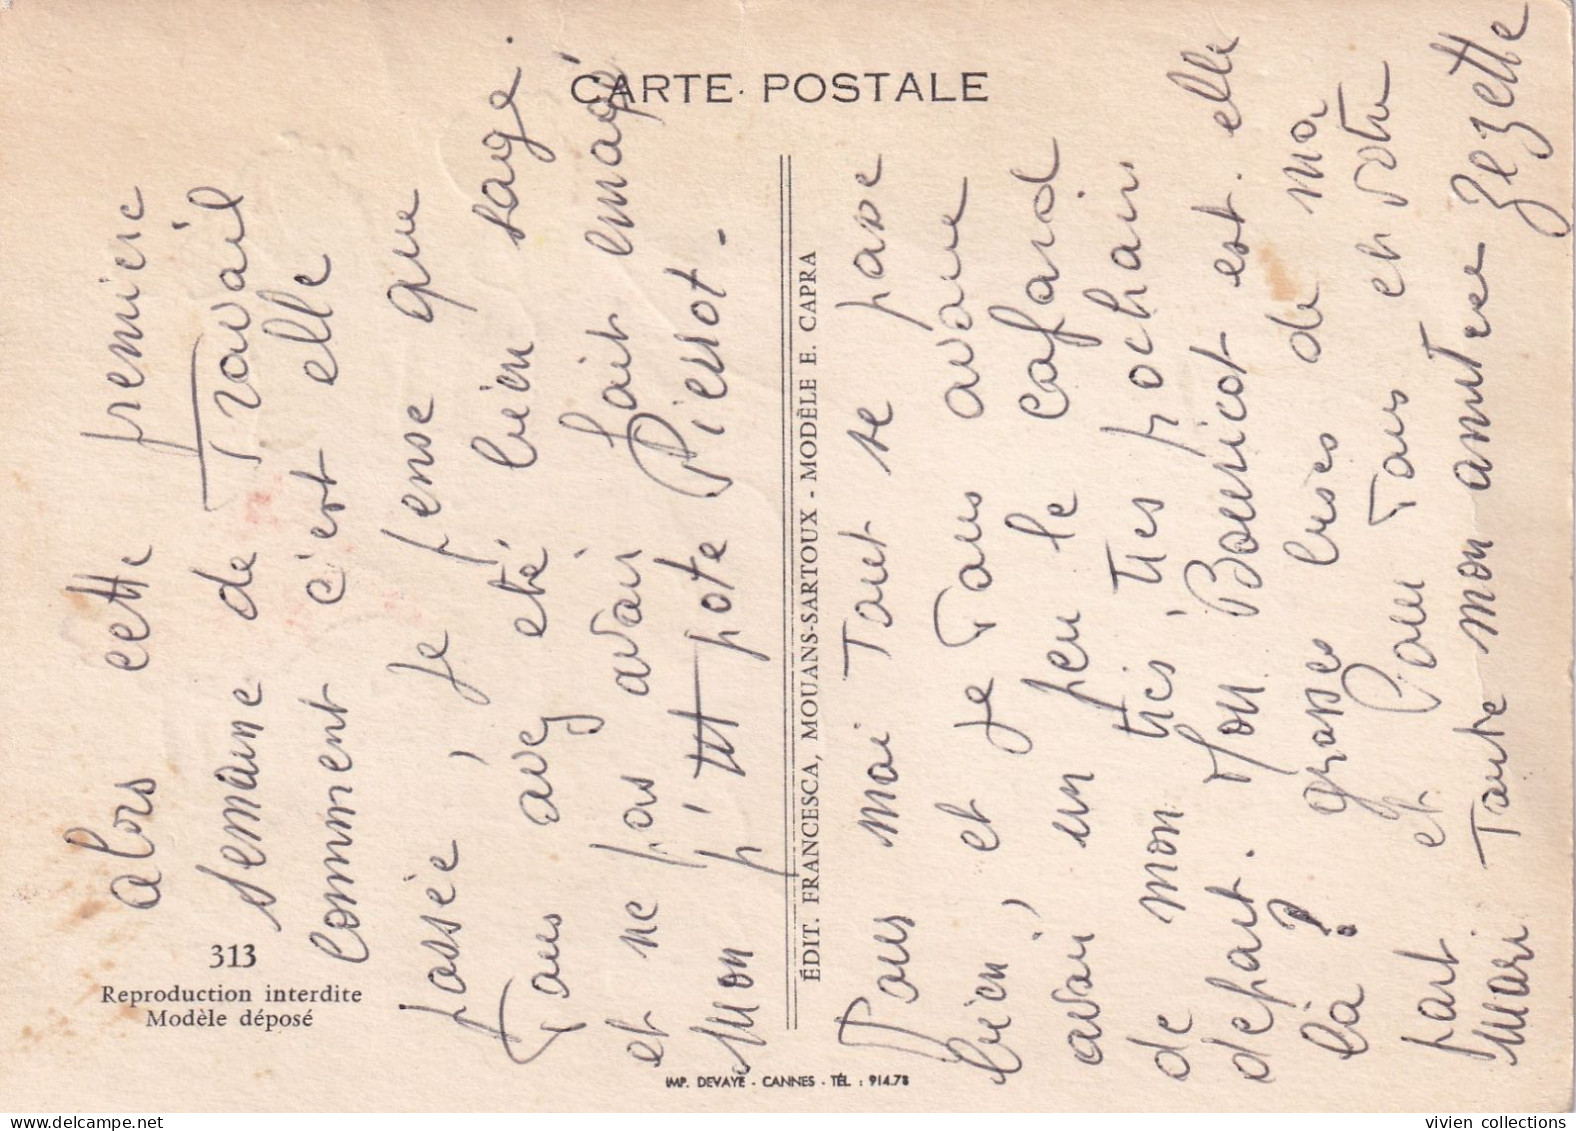 CARTE POSTALE
313
Reproduction interdite
Modèle déposé
ÉDIT. FRANCESCA, MOUANS-SARTOUX - MODÈLE E. CAPRA
IMP. DEVAYE - CANNES - TÉL : 914.78
alors cette premiere
semaine de Travail
comment c'est elle
passée, je pense que
Tous avez eté bien sage.
et ne pas avoir fait
Mon p'tit pote Pierrot -
Pour moi Tout se passe
bien, et je Tous avoue
avoir un peu le cafard
de mon très très pochain
depart. Mon Bouricot est. elle
là ? grosses bises de ma
part et Pour Tous et votre
mari Tante mon amitiee Zezette
vivien collections